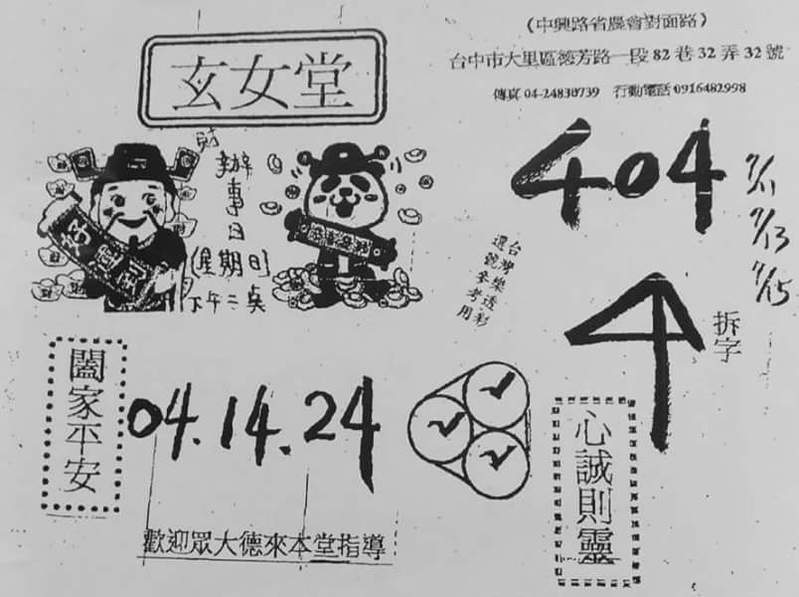 (中興路省農會對面路)
台中市大里區德芳路一段 82 巷 32 弄 32 號
傳真 04-24830739 行動電話 0916482998
玄女堂
財
辦事日
(星期日)
下午二奌
好運到
404
7/11
7/13
7/15
台灣樂透彩
選號參考用
拆字
闔家平安
04.14.24
心誠則靈
歡迎眾大德來本堂指導